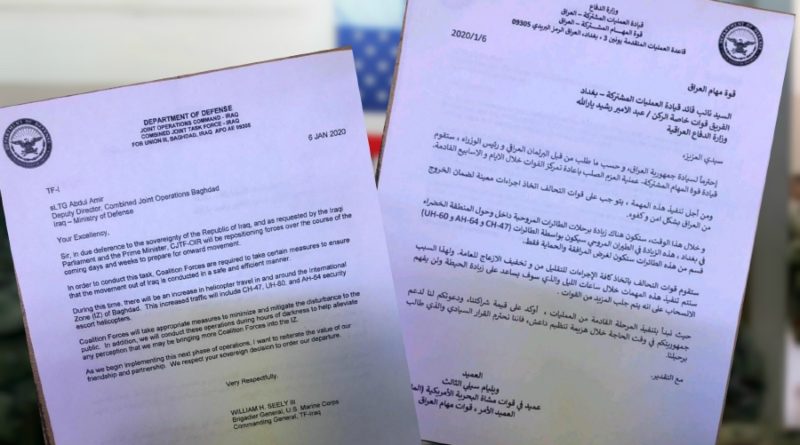 DEPARTMENT OF DEFENSE
JOINT OPERATIONS COMMAND - IRAQ
COMBINED JOINT TASK FORCE - IRAQ
FOB UNION III, BAGHDAD, IRAQ, APO AE 09305
6 JAN 2020
TF-I
sLTG Abdul Amir
Deputy Director, Combined Joint Operations Baghdad
Iraq – Ministry of Defense
Your Excellency,
Sir, in due deference to the sovereignty of the Republic of Iraq, and as requested by the Iraqi
Parliament and the Prime Minister, CJTF-OIR will be repositioning forces over the course of the
coming days and weeks to prepare for onward movement.
In order to conduct this task, Coalition Forces are required to take certain measures to ensure
that the movement out of Iraq is conducted in a safe and efficient manner.
During this time, there will be an increase in helicopter travel in and around the International
Zone (IZ) of Baghdad. This increased traffic will include CH-47, UH-60, and AH-64 security
escort helicopters.
Coalition Forces will take appropriate measures to minimize and mitigate the disturbance to the
public. In addition, we will conduct these operations during hours of darkness to help alleviate
any perception that we may be bringing more Coalition Forces into the IZ.
As we begin implementing this next phase of operations, I want to reiterate the value of our
friendship and partnership. We respect your sovereign decision to order our departure.
Very Respectfully,
WILLIAM H. SEELY III
Brigadier General, U.S. Marine Corps
Commanding General, TF-Iraq
وزارة الدفاع
قيادة العمليات المشتركة – العراق
قوة المهام المشتركة – العراق
قاعدة العمليات المتقدمة يونين 3 ، بغداد، العراق الرمز البريدي 09305
2020/1/6
قوة مهام العراق
السيد نائب قائد قيادة العمليات المشتركة – بغداد
الفريق قوات خاصة الركن / عبد الامير رشيد يارالله
وزارة الدفاع العراقية
سيدي العزيز،
إحتراماً لسيادة جمهورية العراق، و حسب ما طلب من قبل البرلمان العراقي و رئيس الوزراء ، ستقوم
قيادة قوة المهام المشتركة- عملية العزم الصلب بإعادة تمركز القوات خلال الايام و الاسابيع القادمة.
ومن أجل تنفيذ هذه المهمة ، يتوجب على قوات التحالف اتخاذ اجراءات معينة لضمان الخروج
من العراق بشكل امن و كفوء.
و خلال هذا الوقت، ستكون هناك زيادة برحلات الطائرات المروحية داخل وحول المنطقة الخضراء
في بغداد ، هذه الزيادة في الطيران المروحي سيكون بواسطة الطائرات (CH-47 و AH-64 و UH-60)
قسم من هذه الطائرات ستكون لغرض المرافقة والحماية فقط.
ستقوم قوات التحالف باتخاذ كافة الإجراءات للتقليل من و تخفيف الازعاج للعامة. ولهذا السبب
ستتم تنفيذ هذه المهمات خلال ساعات الليل والذي سوف يساعد على زيادة الحيطة ولن يفهم
الانسحاب على انه يتم جلب المزيد من القوات .
حيث نبدأ بتنفيذ المرحلة القادمة من العمليات ، أؤكد على قيمة شراكتنا، ودعوتكم لنا لدعم
جمهوريتكم في وقت الحاجة خلال هزيمة تنظيم داعش، فاننا نحترم القرار السيادي والذي طالب
برحيلنا.
مع التقدير.
العميد
ويليام سيلي الثالث
عميد في قوات مشاة البحرية الأمريكية
العميد الأمر ، قوات مهام العراق